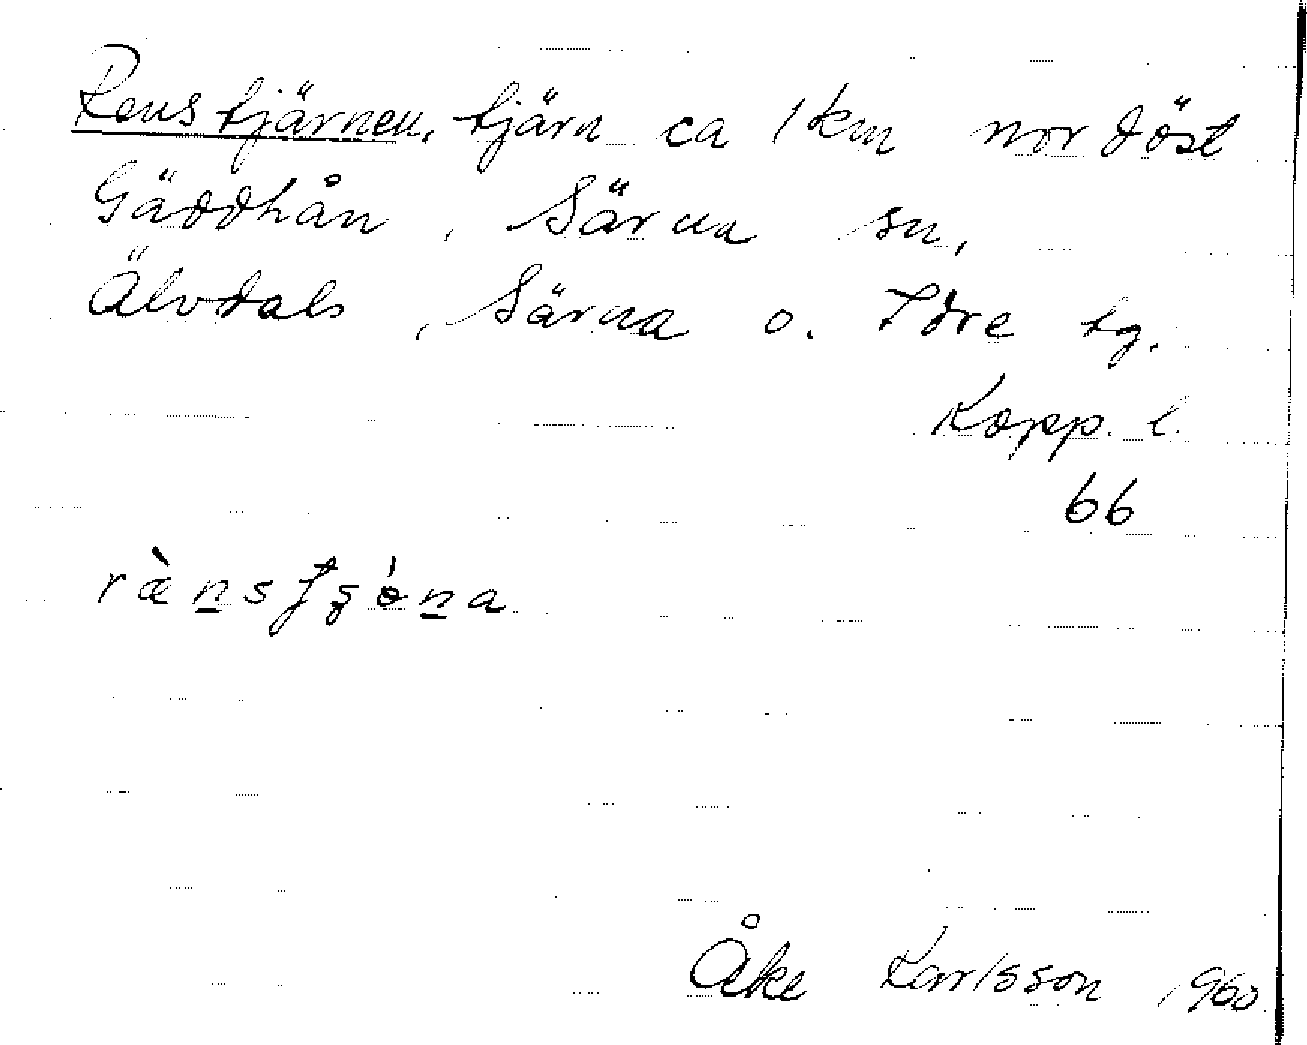 Renstjärnen, tjärn ca 1 km nordöst
Gäddhån, Särna sn,
Älvdals, Särna o. Idre tg.
Kopp. l.
66
Åke Karlsson 1960